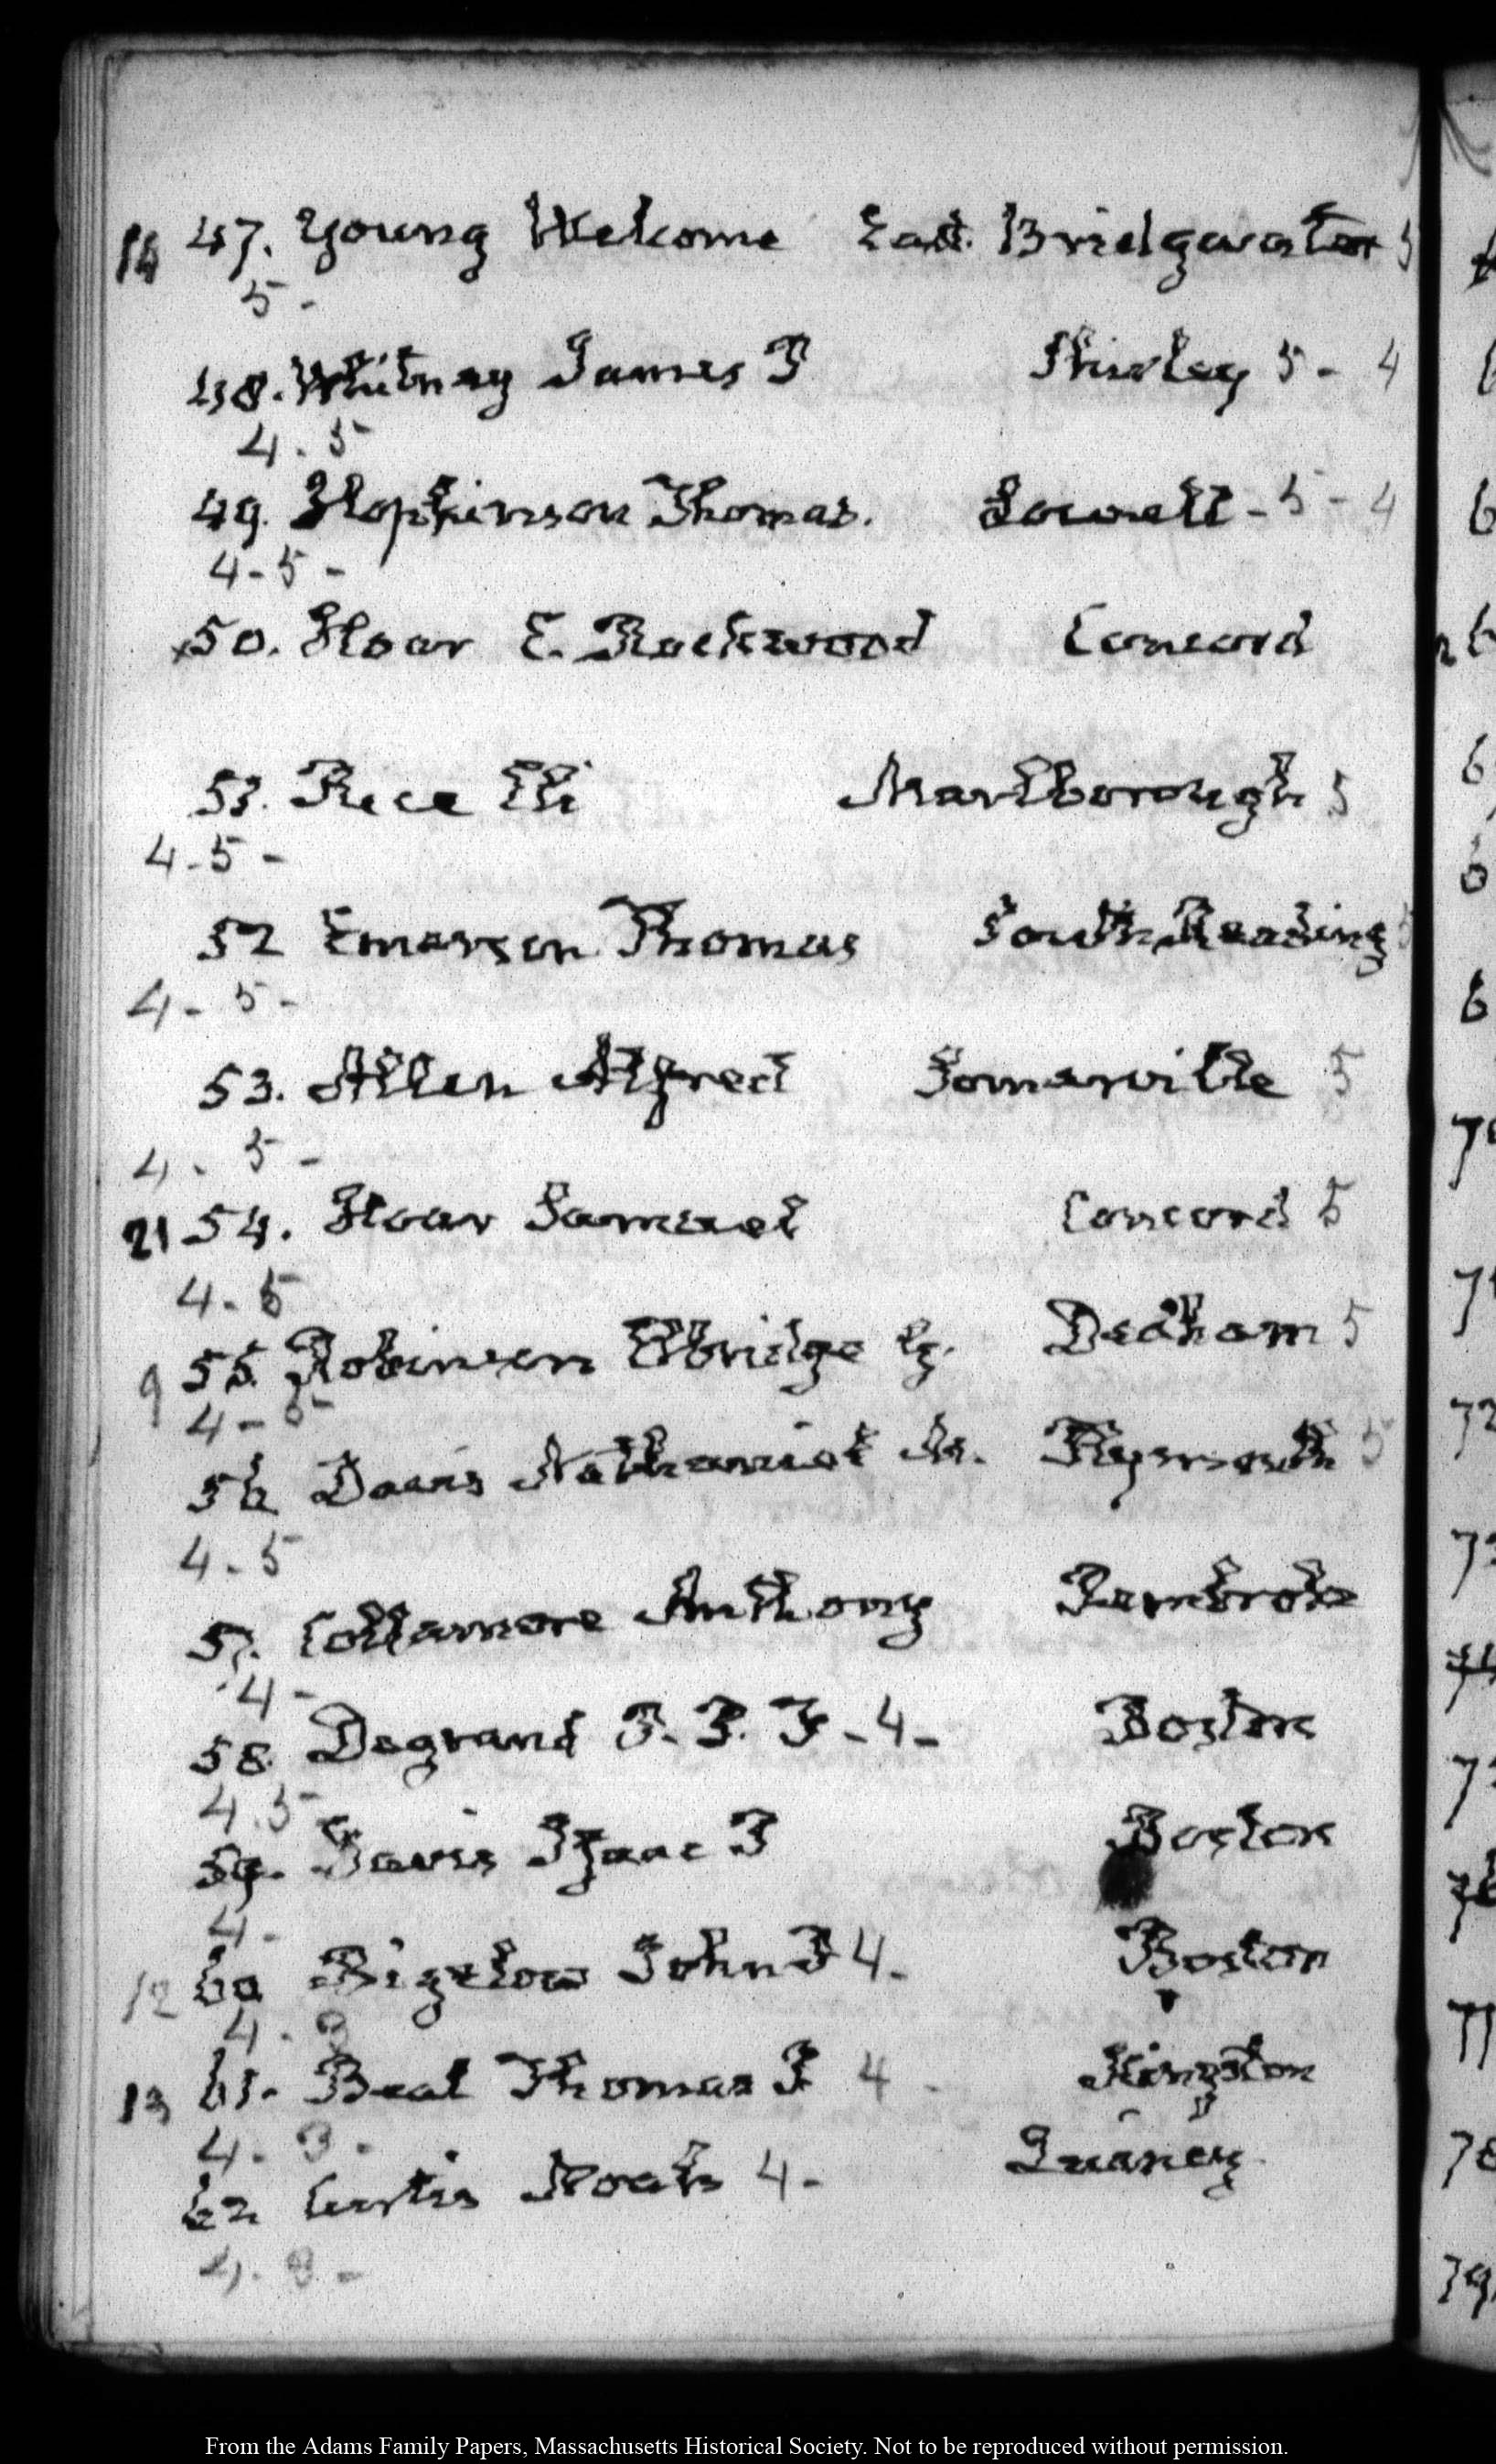 14 47. Young Welcome East Bridgewater 5
5 -
48. Whitney James P Shirley 5 - 4
4. 5
49. Hopkinson Thomas. Lowell - 5 - 4
4 - 5 -
50. Hoar E. Rockwood Concord
51. Rice Eli Marlborough 5
4 - 5 -
52 Emerson Thomas South Reading 5
4 - 5 -
53. Allen Alfred Somerville 5
4. 5 -
21 54. Hoar Samuel Concord 5
4. 5
9 55. Robinson Elbridge G. Dedham 5
4 - 5 -
56 Davis Nathaniel M. Plymouth 5
4 - 5
57. Collamore Anthony Pembroke
4 -
58. Degrand P. P. F - 4 - Boston
4. 5
59. Davis Isaac P Boston
4.
12 60 Bigelow John P 4. Boston
4. 3
13 61. Beal Thomas P 4. Kingston
4. 3.
62 Curtis Noah 4. Quincy
4. 3 -
From the Adams Family Papers, Massachusetts Historical Society. Not to be reproduced without permission.